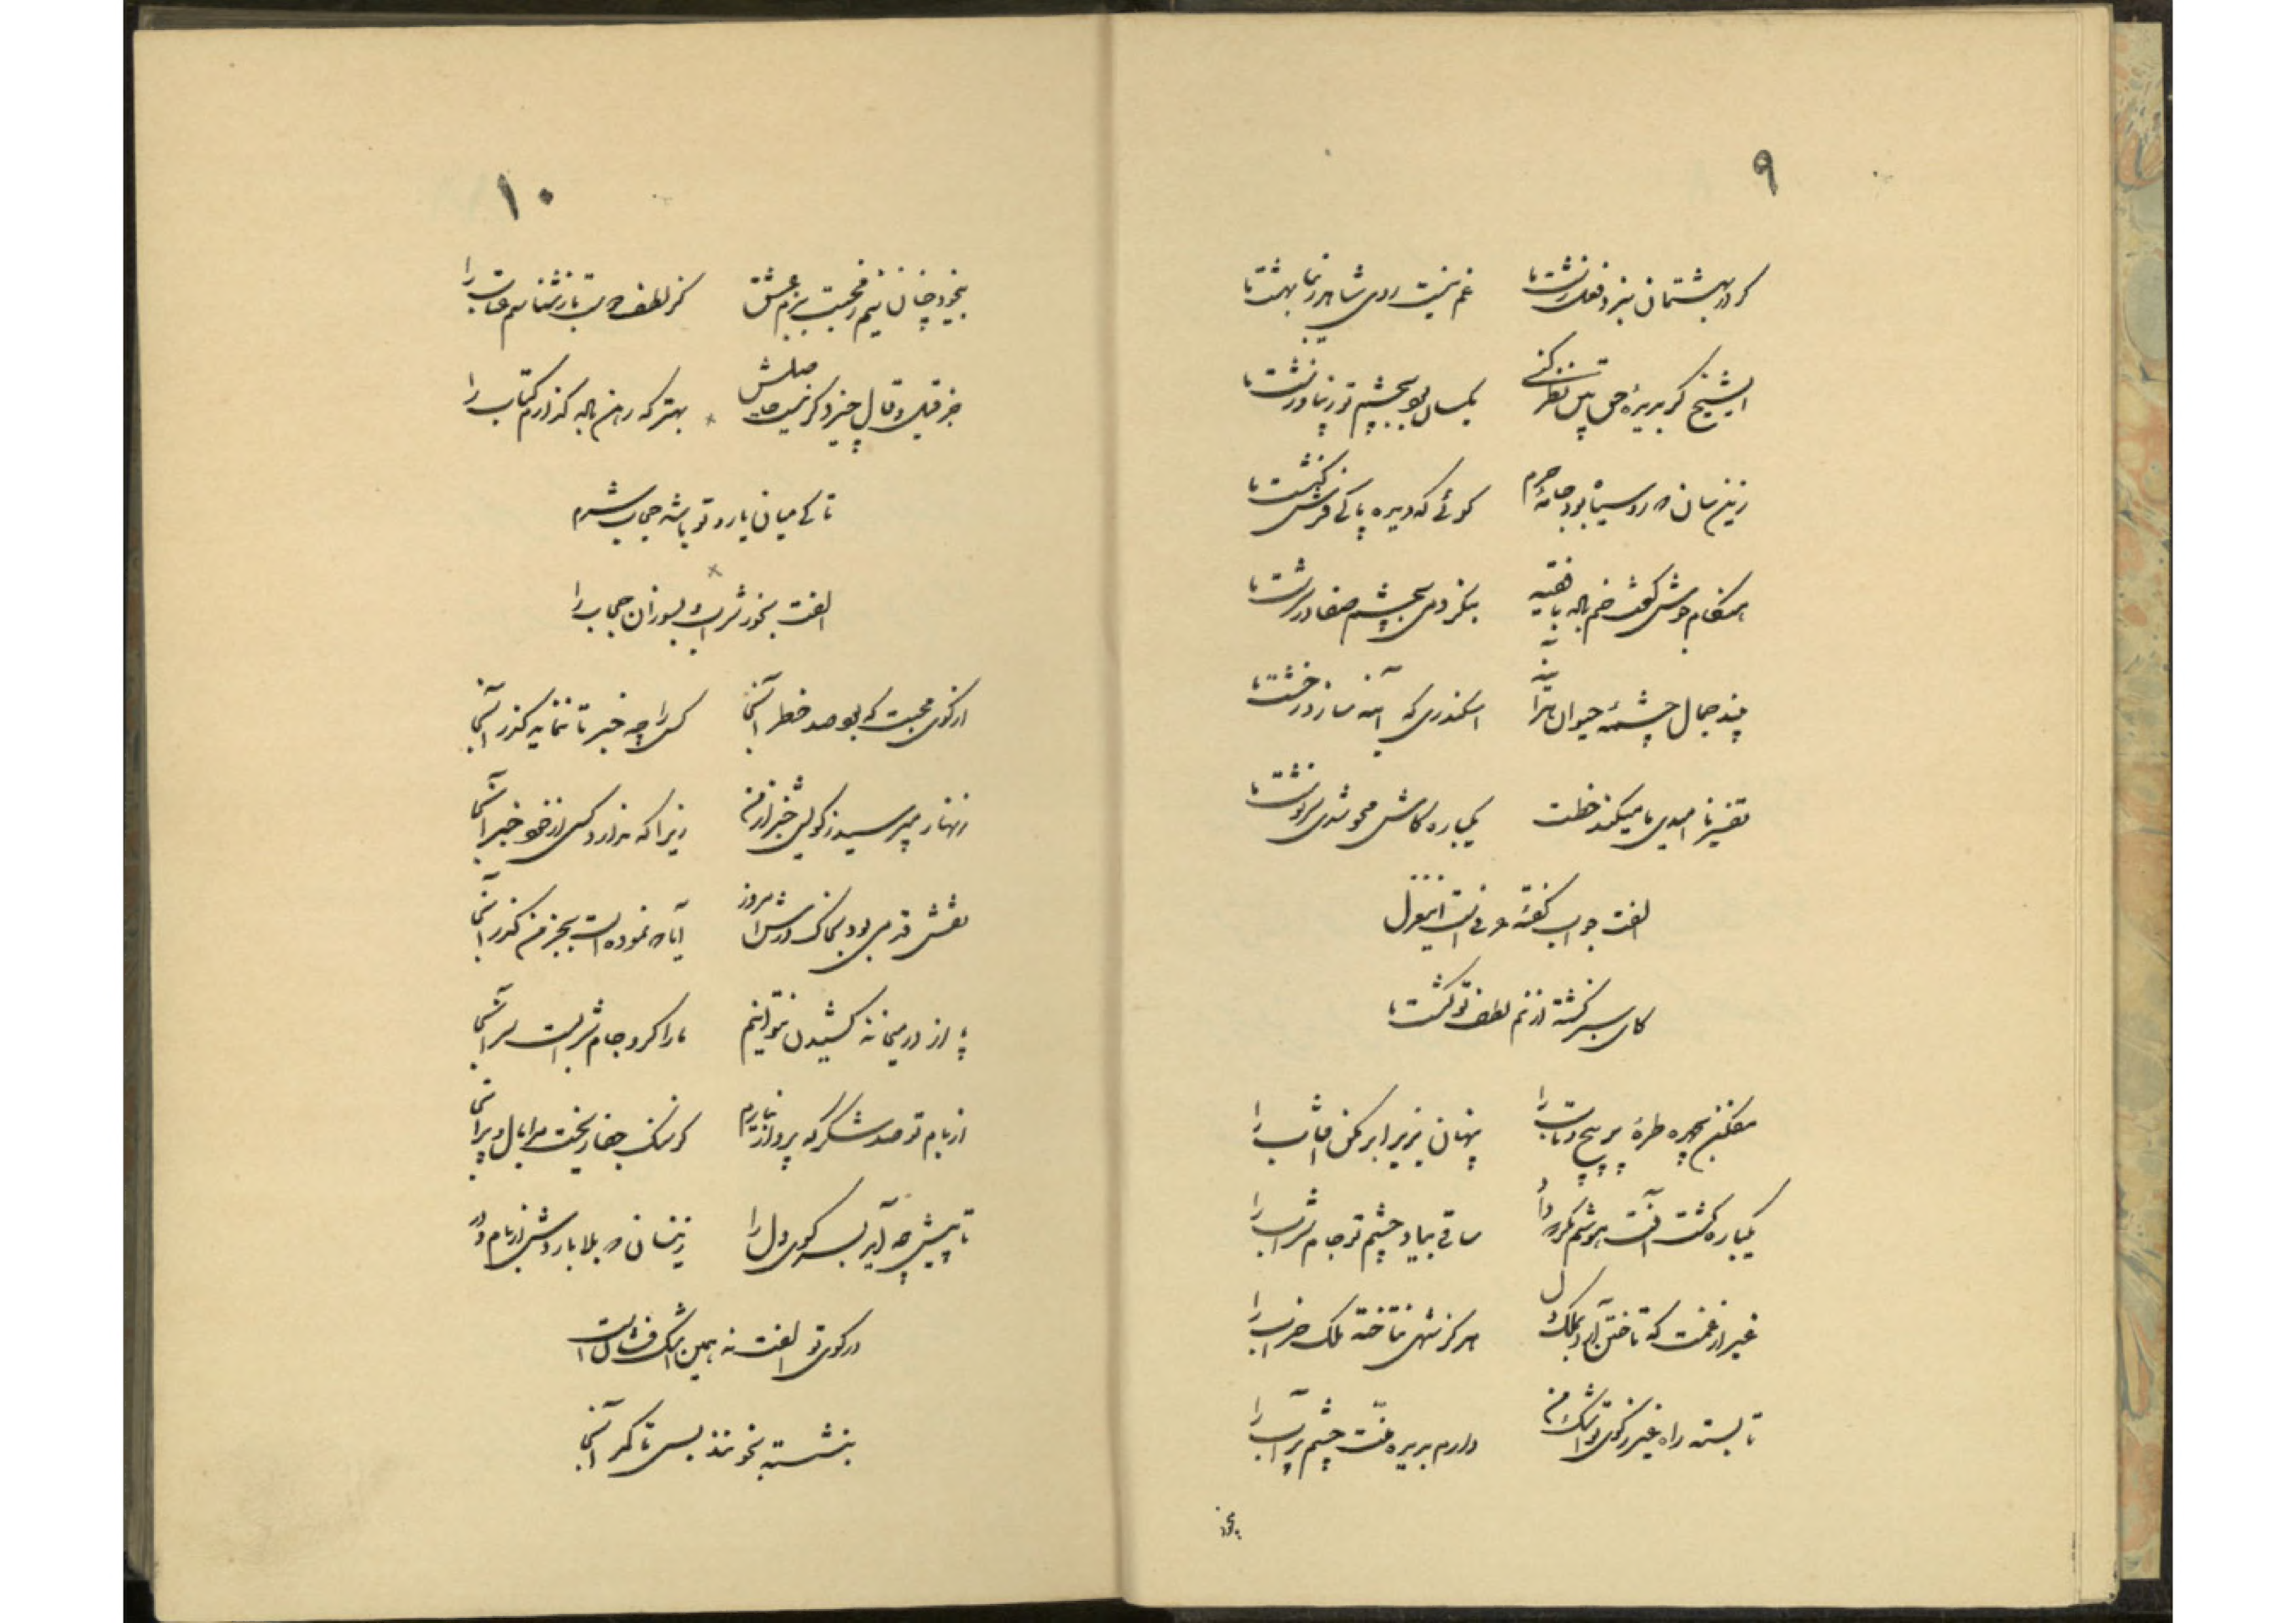 ۹
گر در بهشتمان نبرد فعل زشت ما
غم نیست روی شاهد زیبا بهشت ما
ای شیخ گر بدیدهٔ حق بین نظر کنی
یکسان بود بچشم تو زیبا و زشت ما
زینسان که روسیاه بود جامهٔ حرم
گوئی که دیده پاکی فرش کنشت ما
هنگام جوش گفت خم باده با فقیه
بنگر دمی بچشم صفا در سرشت ما
بیند جمال چشمهٔ حیوان در آینه
اسکندری که آینه سازد ز خشت ما
تفسیر ناامیدی ما میکند خطت
یکباره کاش محو شدی سرنوشت ما
الفت جواب گفتهٔ عرفیست این غزل
کای سبز گشته از نم لطف تو کشت ما
مفکن بچهره طرهٔ پر پیچ و تاب را
پنهان بزیر ابر مکن آفتاب را
یکباره گشت آفت هوشم که داد
ساقی بیاد چشم تو جام شراب را
غیر از غمت که تاختن آرد بملک دل
هرگز شهی نتاخته ملک خراب را
تا بسته راه غیر ز کوی تو اشک من
دارم بدیده منت چشم پر آب را
بیخود
۱۰
بیخود چنان نیم ز محبت ببزم عشق
کز لطف دوست باز شناسم عتاب را
جز قیل و قال چیز دگر نیست حاصلش
بهتر که رهن باده گذارم کتاب را
تا کی میان یار و تو باشد حجاب شرم
الفت بخور شراب و بسوزان حجاب را
از کوی محبت که بود صد خطر آنجا
کس را چه خبر تا ننماید گذر آنجا
زنهار مپرسید ز کویش خبر از من
زیرا که ندارد کسی از خود خبر آنجا
نقش قدمی بود بخاک درش امروز
آیا که نموده است بجز من گذر آنجا
پا از در میخانه کشیدن نتوانیم
ما را گرو جام شراب است سر آنجا
از بام تو صد شکر که پرواز ندارم
کز سنگ جفا ریخت مرا بال و پر آنجا
تا پیش چه آید بسر کوی دل را
زینسان که بلا بارَدش از بام و در
در کوی تو الفت نه همین اشک فشان است
بنشسته بخون نیز بسی تا کمر آنجا